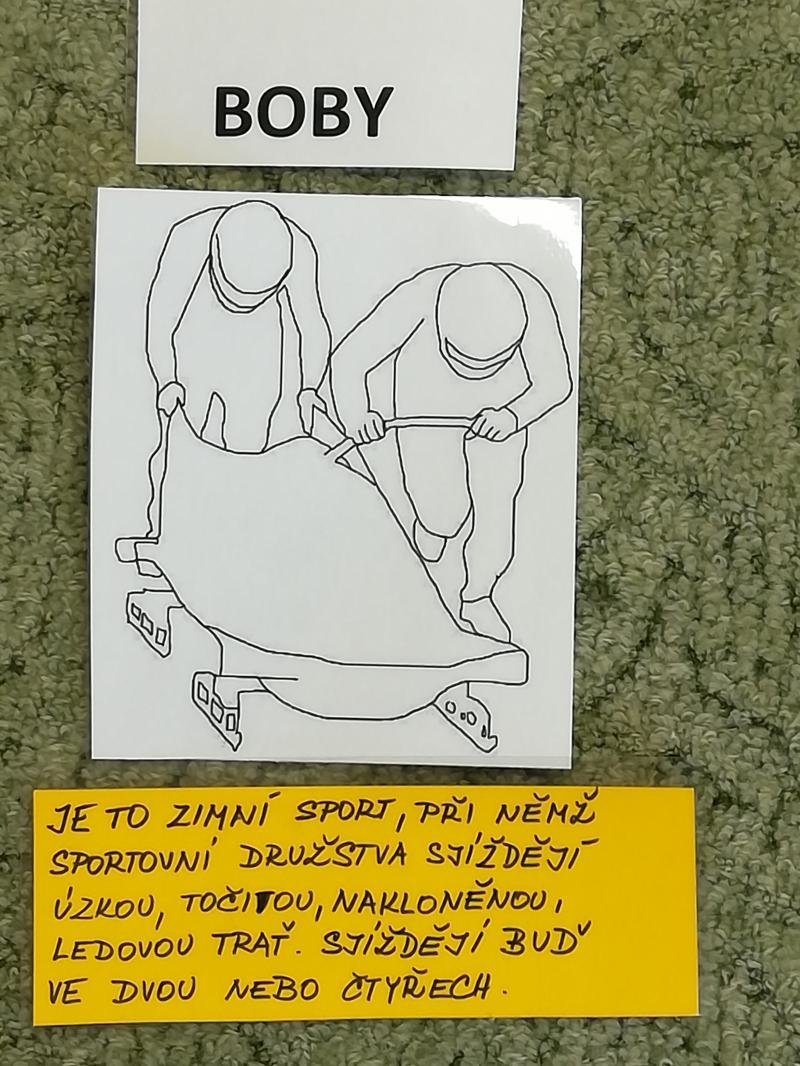 BOBY
JE TO ZIMNÍ SPORT, PŘI NĚMŽ
SPORTOVNÍ DRUŽSTVA SJÍŽDĚJÍ
ÚZKOU, TOČITOU, NAKLONĚNOU,
LEDOVOU TRAŤ. SJÍŽDĚJÍ BUĎ
VE DVOU NEBO ČTYŘECH.